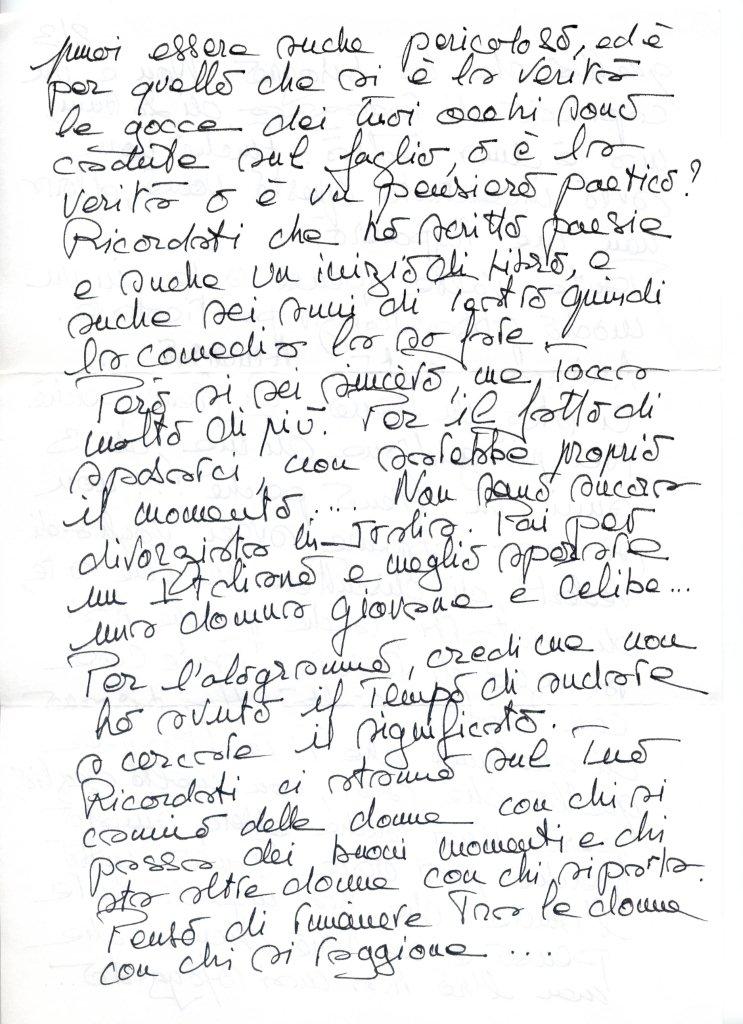 puoi essere anche pericoloso, ed è
per quello che si è la verità
le gocce dei tuoi occhi sono
cadute sul foglio, o è la
verità o è un pensiero poetico?
Ricordati che ho scritto poesie
e anche un inizio di libro, e
anche sei anni di teatro quindi
la comedia la so fare –
Però si sei sincero, me tocca
molto di più. Per il fatto di
sposarci, non sarebbe proprio
il momento .... Non sono ancora
divorziata in Italia. Poi per
un Italiano e meglio sposare
una donna giovane e celibe...
Per l'ologramma, credi me non
ho avuto il tempo di andare
a cercare il significato.
Ricordati ci stanno sul tuo
camino delle donne con chi si
passa dei buoni momenti e chi
sta altre donne con chi si parla.
Penso di rimanere tra le donne
con chi si raggiona ....